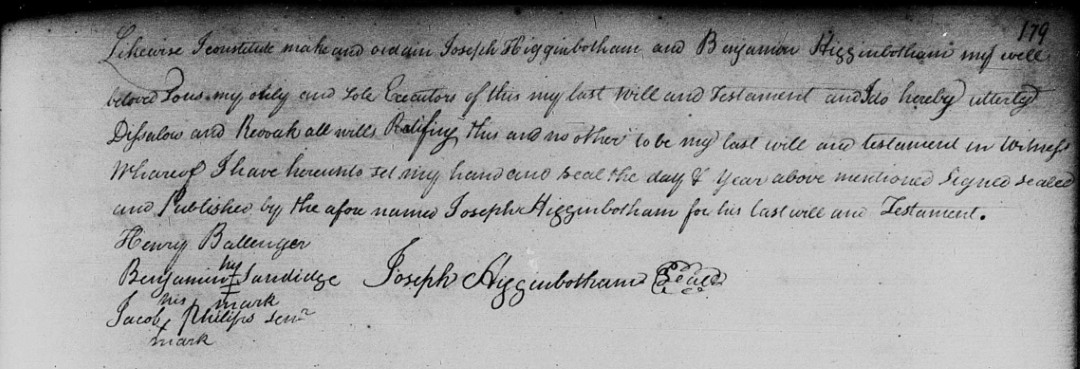 179
Likewise I constitute make and ordain Joseph Higginbotham and Benjamin Higginbotham my well
beloved Sons my only and Sole Executors of this my last Will and Testament and I do hereby utterly
Dissalow and Revoak all wills Ratifing this and no other to be my last will and testament in Witness
Whareof I have hereunto set my hand and seal the day & Year above mentioned Signed sealed
and Published by the afore named Joseph Higginbotham for his last will and Testament.
Henry Ballenger
Benjamin his Sandidge Joseph Higginbotham Seal
mark
Jacob his Philips senr
mark